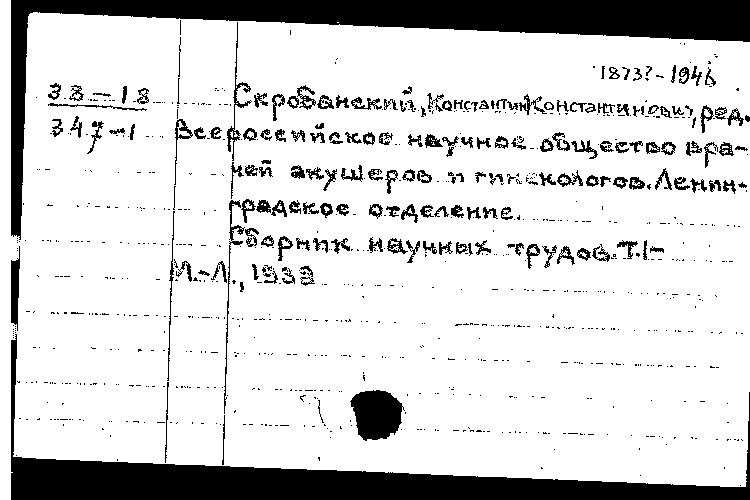 1873?-1946
38-18 Скробанский, Константин Константинович, ред.
347-1 Всероссийское научное общество вра-
чей акушеров и гинекологов. Ленин-
градское отделение.
Сборник научных трудов. Т.I-
М.-Л., 1939